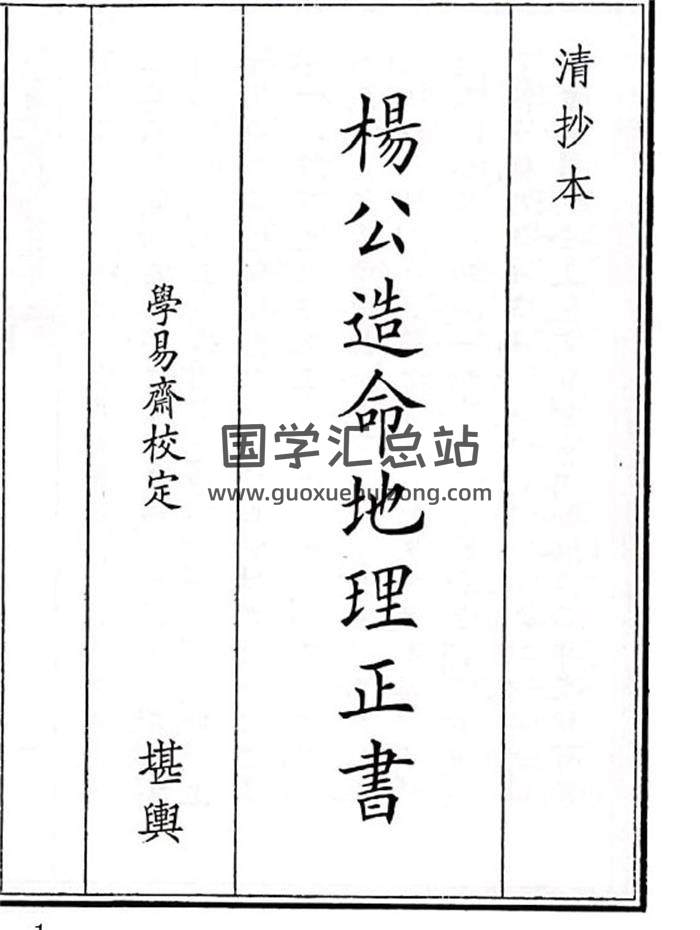 清抄本
楊公造命地理正書
學易齋校定
堪輿
国学汇总站
www.guoxuehuizong.com
1